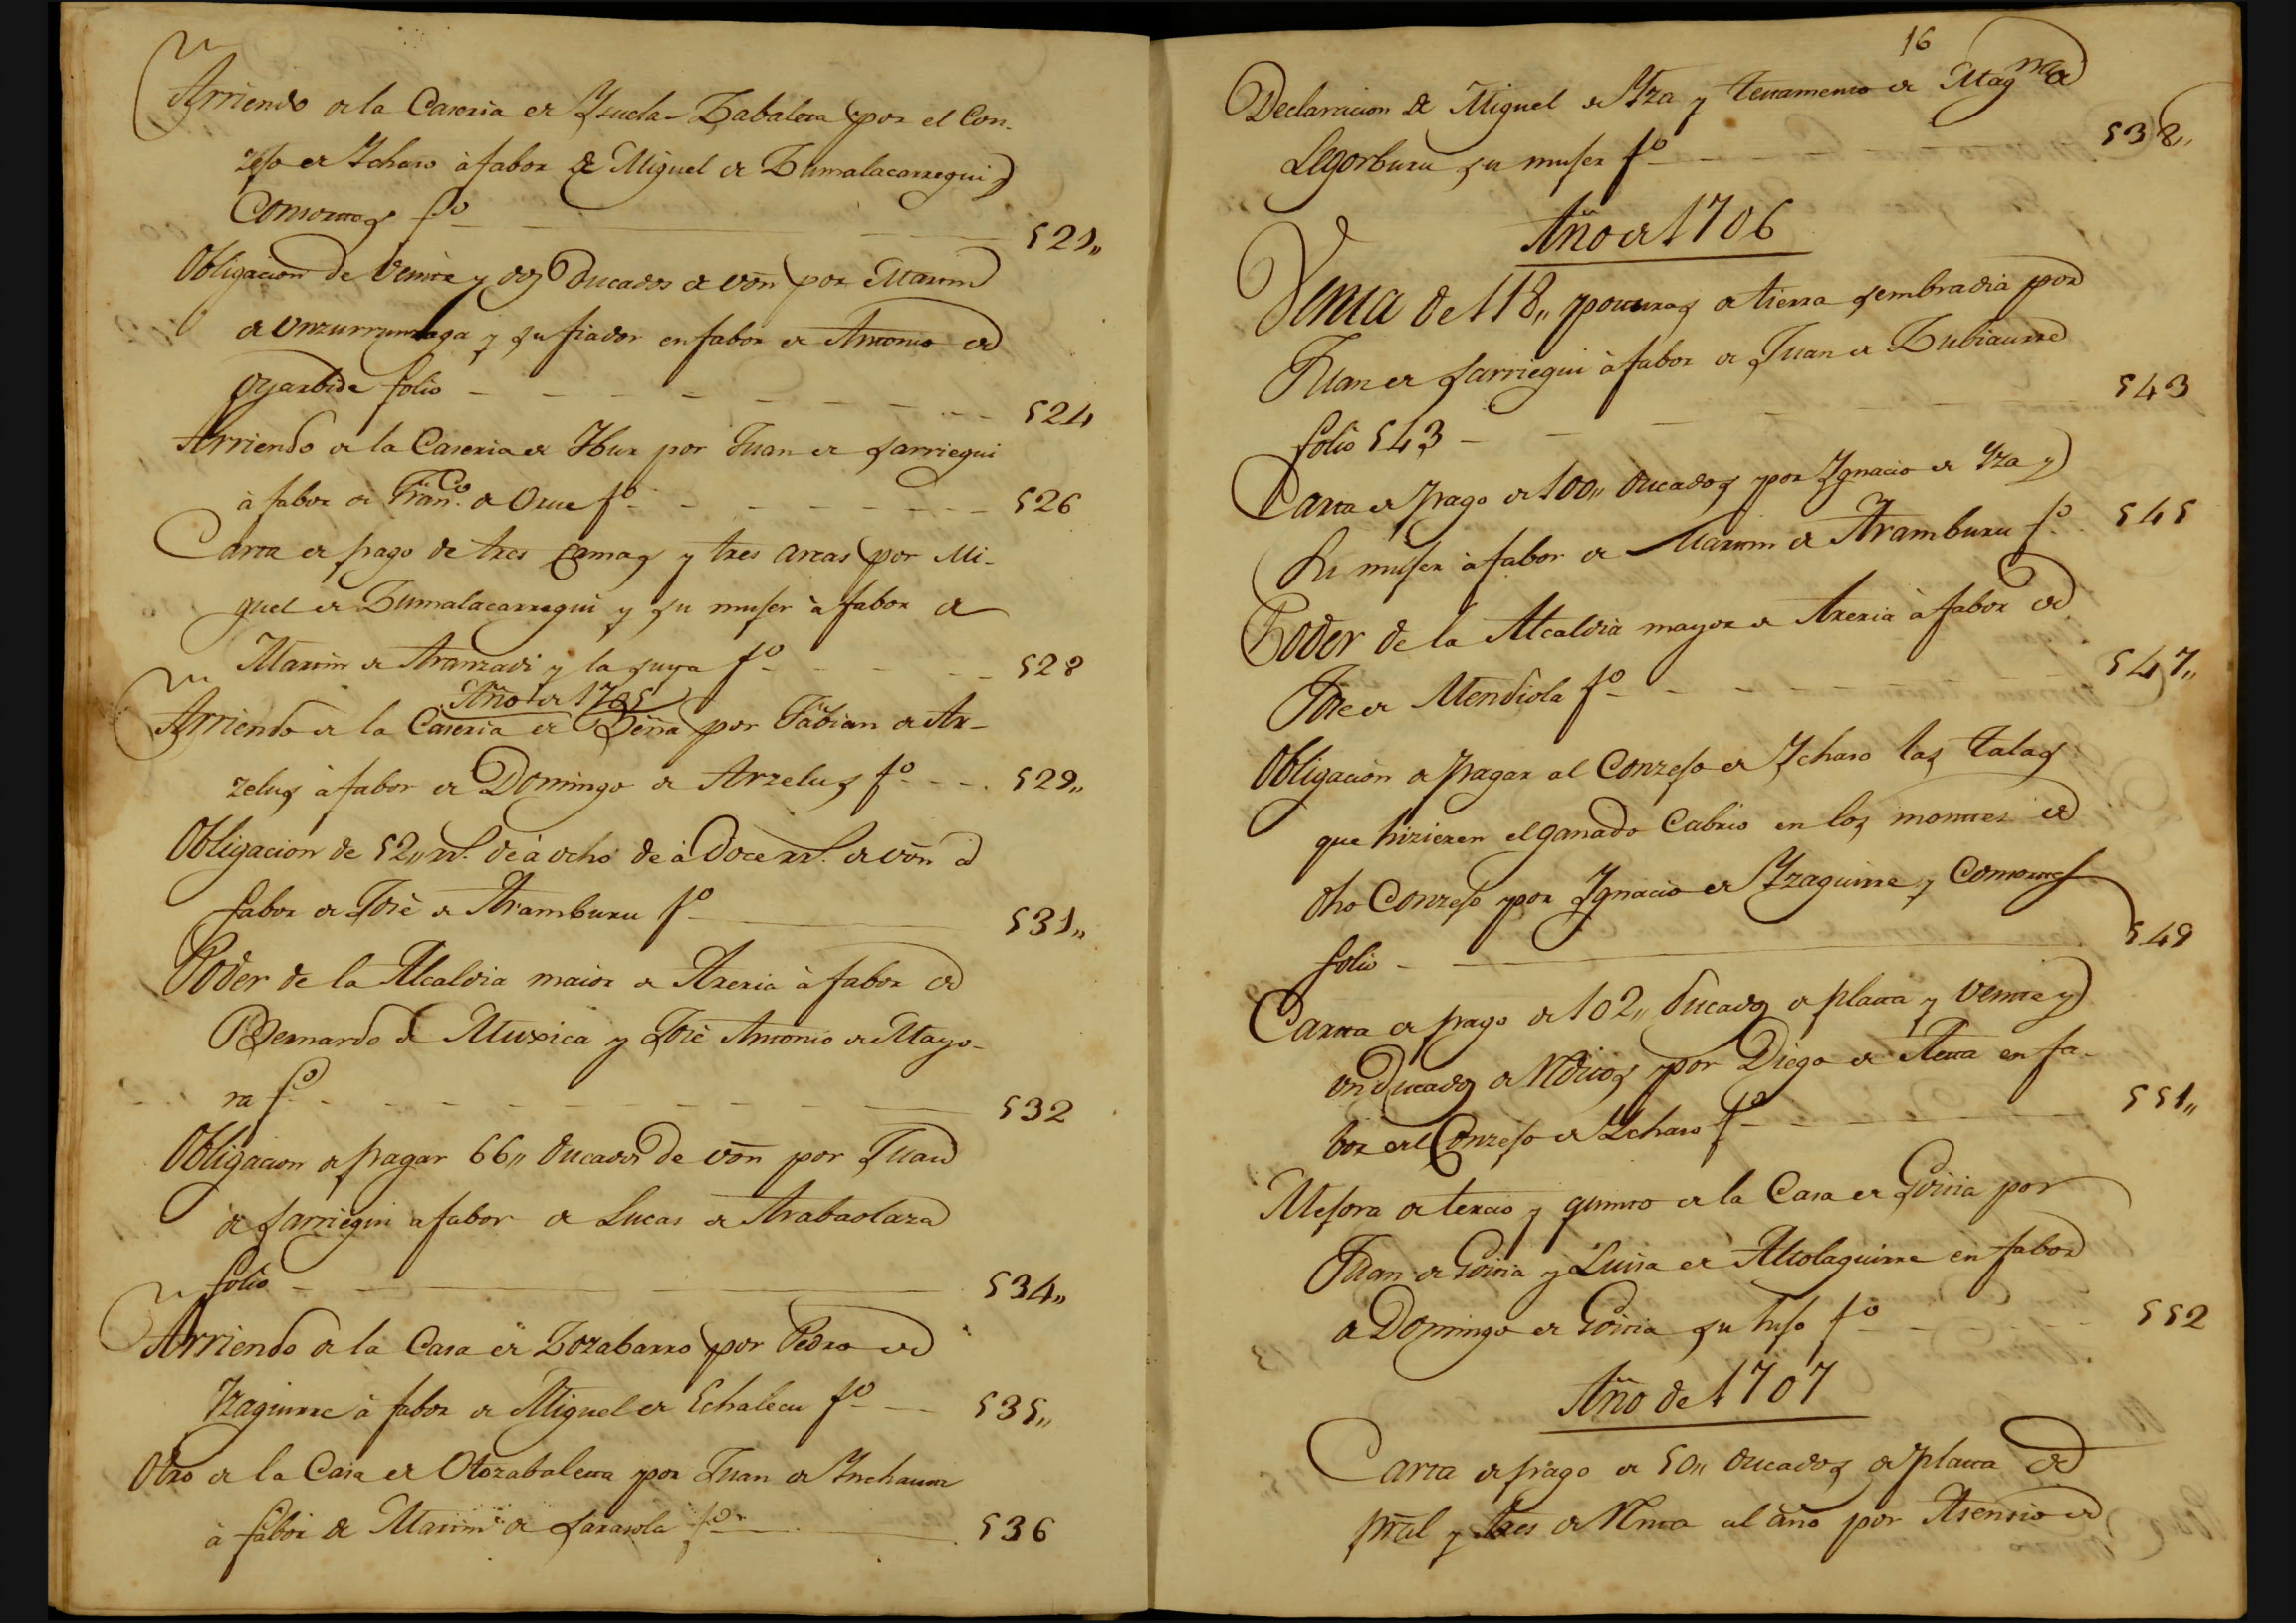 Arriendo de la Caseria de Ysucla-Zabaleta por el Con-
zejo de Ychaso à fabor de Miguel de Zumalacarregui y
Consortes fo 521,,
Obligacion de Veinte y dos Ducados de von por Martin
de Unzurrunzaga y su fiador en fabor de Antonio de
oyarbide folio 524
Arriendo de la Caseria de Ybur por Juan de Sarriegui
à fabor de Franco. de Orue fo 526
Carta de pago de tres camas y tres arcas por Mi-
guel de Zumalacarregui y su mujer à fabor de
Martin de Aranzadi y la suya fo 528
Año de 1705
Arriendo de la Caseria de por Fabian de Ar-
zelus à fabor de Domingo de Arzelus fo 529,,
Obligacion de 52,, rs. de à ocho de à doce rs. de von à
fabor de Josè de Aramburu fo 531,,
Poder de la Alcaldia maior de Areria à fabor de
Bernardo de Muxica y Josè Antonio de Mayo-
ra fo 532
Obligacion de pagar 66,, Ducados de von por Juan
de Sarriegui a fabor de Lucas de Arabaolaza
folio 534,,
Arriendo de la Casa de Zozabarro por Pedro de
Yzaguirre à fabor de Miguel de Echalecu fo 535,,
Otro de la Casa de Otozabaleta por Juan de Ynchausti
à fabor de Martin de Sarasola fo 536
16
Declaracion de Miguel de Yza y testamento de Magna
Legorburu su mujer fo 538,,
Año de 1706
Venta de 118,, posturas de tierra sembradia por
Juan de Sarriegui à fabor de Juan de Zubiaurre
folio 543 543
Carta de pago de 100,, Ducados por Ygnacio de Yza y
Su mujer à fabor de Martin de Aramburu fo 545
Poder de la Alcaldia mayor de Areria à fabor de
Jose de Mendiola fo 547,,
Obligacion de pagar al Conzejo de Ychaso las talas
que hizieren el ganado Cabrio en los montes de
dho Conzejo por Ygnacio de Yzaguirre y Consortes
folio 549
Carta de pago de 102,, Ducados de plata y veinte y
un Ducados de Rditos por Diego de en fa-
bor del Conzejo de Ychaso fo 551,,
Mejora de tercio y quinto de la Casa de Goiria por
Juan de Goiria y Luisa de Altolaguirre en fabor
de Domingo de Goiria su hijo fo 552
Año de 1707
Carta de pago de 50,, Ducados de plata de
prãl y tres de Rnta al año por Asensio de